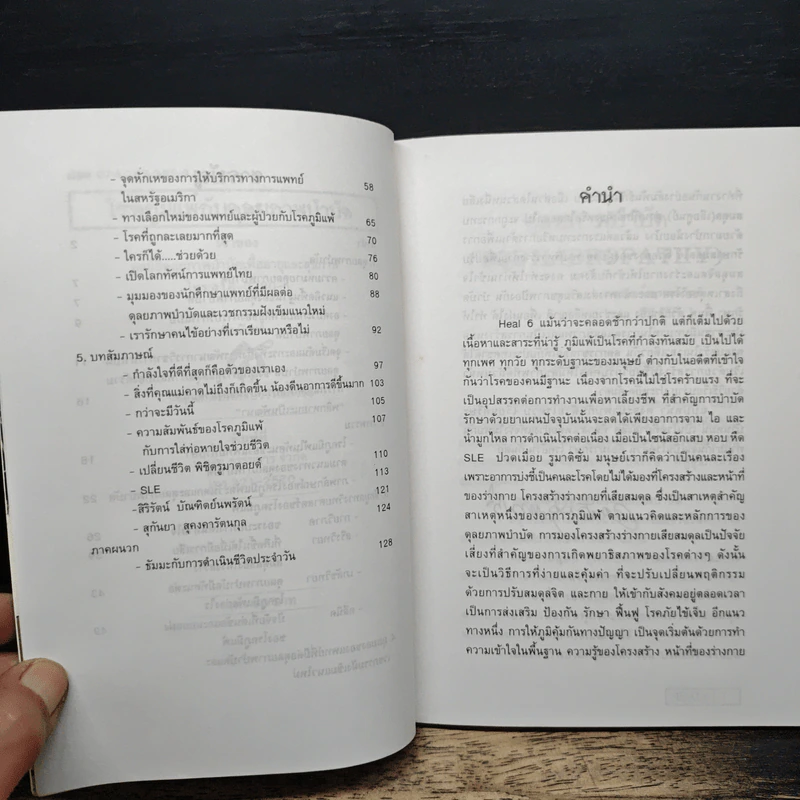 - จุดหักเหของการให้บริการทางการแพทย์ 58
ในสหรัฐอเมริกา
- ทางเลือกใหม่ของแพทย์และผู้ป่วยกับโรคภูมิแพ้ 65
- โรคที่ถูกละเลยมากที่สุด 70
- ใครก็ได้.....ช่วยด้วย 76
- เปิดโลกทัศน์การแพทย์ไทย 80
- มุมมองของนักศึกษาแพทย์ที่มีผลต่อ 88
ดุลยภาพบำบัดและเวชกรรมฝังเข็มแนวใหม่
- เรารักษาคนไข้อย่างที่เราเรียนมาหรือไม่ 92
5. บทสัมภาษณ์
- กำลังใจที่ดีที่สุดก็คือตัวของเราเอง 97
- สิ่งที่คุณแม่คาดไม่ถึงก็เกิดขึ้น น้องดีนอาการดีขึ้นมาก 103
- กว่าจะมีวันนี้ 105
- ความสัมพันธ์ของโรคภูมิแพ้ 107
กับการใส่ท่อหายใจช่วยชีวิต
- เปลี่ยนชีวิต พิชิตรูมาตอยด์ 110
- SLE 113
-สิริรัตน์ บัณฑิตย์นพรัตน์ 121
- สุกันยา สุคงคารัตนกุล 124
ภาคผนวก
- ธัมมะกับการดำเนินชีวิตประจำวัน 128
คำนำ
Heal 6 แม้นว่าจะคลอดช้ากว่าปกติ แต่ก็เต็มไปด้วย
เนื้อหาและสาระที่น่ารู้ ภูมิแพ้เป็นโรคที่กำลังทันสมัย เป็นไปได้
ทุกเพศ ทุกวัย ทุกระดับฐานะของมนุษย์ ต่างกับในอดีตที่เข้าใจ
กันว่าโรคของคนมีฐานะ เนื่องจากโรคนี้ไม่ใช่โรคร้ายแรง ที่จะ
เป็นอุปสรรคต่อการทำงานเพื่อหาเลี้ยงชีพ ที่สำคัญการบำบัด
รักษาด้วยยาแผนปัจจุบันนั้นจะลดได้เพียงอาการจาม ไอ และ
น้ำมูกไหล การดำเนินโรคต่อเนื่อง เมื่อเป็นไซนัสอักเสบ หอบ หืด
SLE ปวดเมื่อย รูมาติซั่ม มนุษย์เราก็คิดว่าเป็นคนละเรื่อง
เพราะอาการบ่งชี้เป็นคนละโรคโดยไม่ได้มองที่โครงสร้างและหน้าที่
ของร่างกาย โครงสร้างร่างกายที่เสียสมดุล ซึ่งเป็นสาเหตุสำคัญ
สาเหตุหนึ่งของอาการภูมิแพ้ ตามแนวคิดและหลักการของ
ดุลยภาพบำบัด การมองโครงสร้างร่างกายเสียสมดุลเป็นปัจจัย
เสี่ยงที่สำคัญของการเกิดพยาธิสภาพของโรคต่างๆ ดังนั้น
จะเป็นวิธีการที่ง่ายและคุ้มค่า ที่จะปรับเปลี่ยนพฤติกรรม
ด้วยการปรับสมดุลจิต และกาย ให้เข้ากับสังคมอยู่ตลอดเวลา
เป็นการส่งเสริม ป้องกัน รักษา ฟื้นฟู โรคภัยไข้เจ็บ อีกแนว
ทางหนึ่ง การให้ภูมิคุ้มกันทางปัญญา เป็นจุดเริ่มต้นด้วยการทำ
ความเข้าใจในพื้นฐาน ความรู้ของโครงสร้าง หน้าที่ของร่างกาย